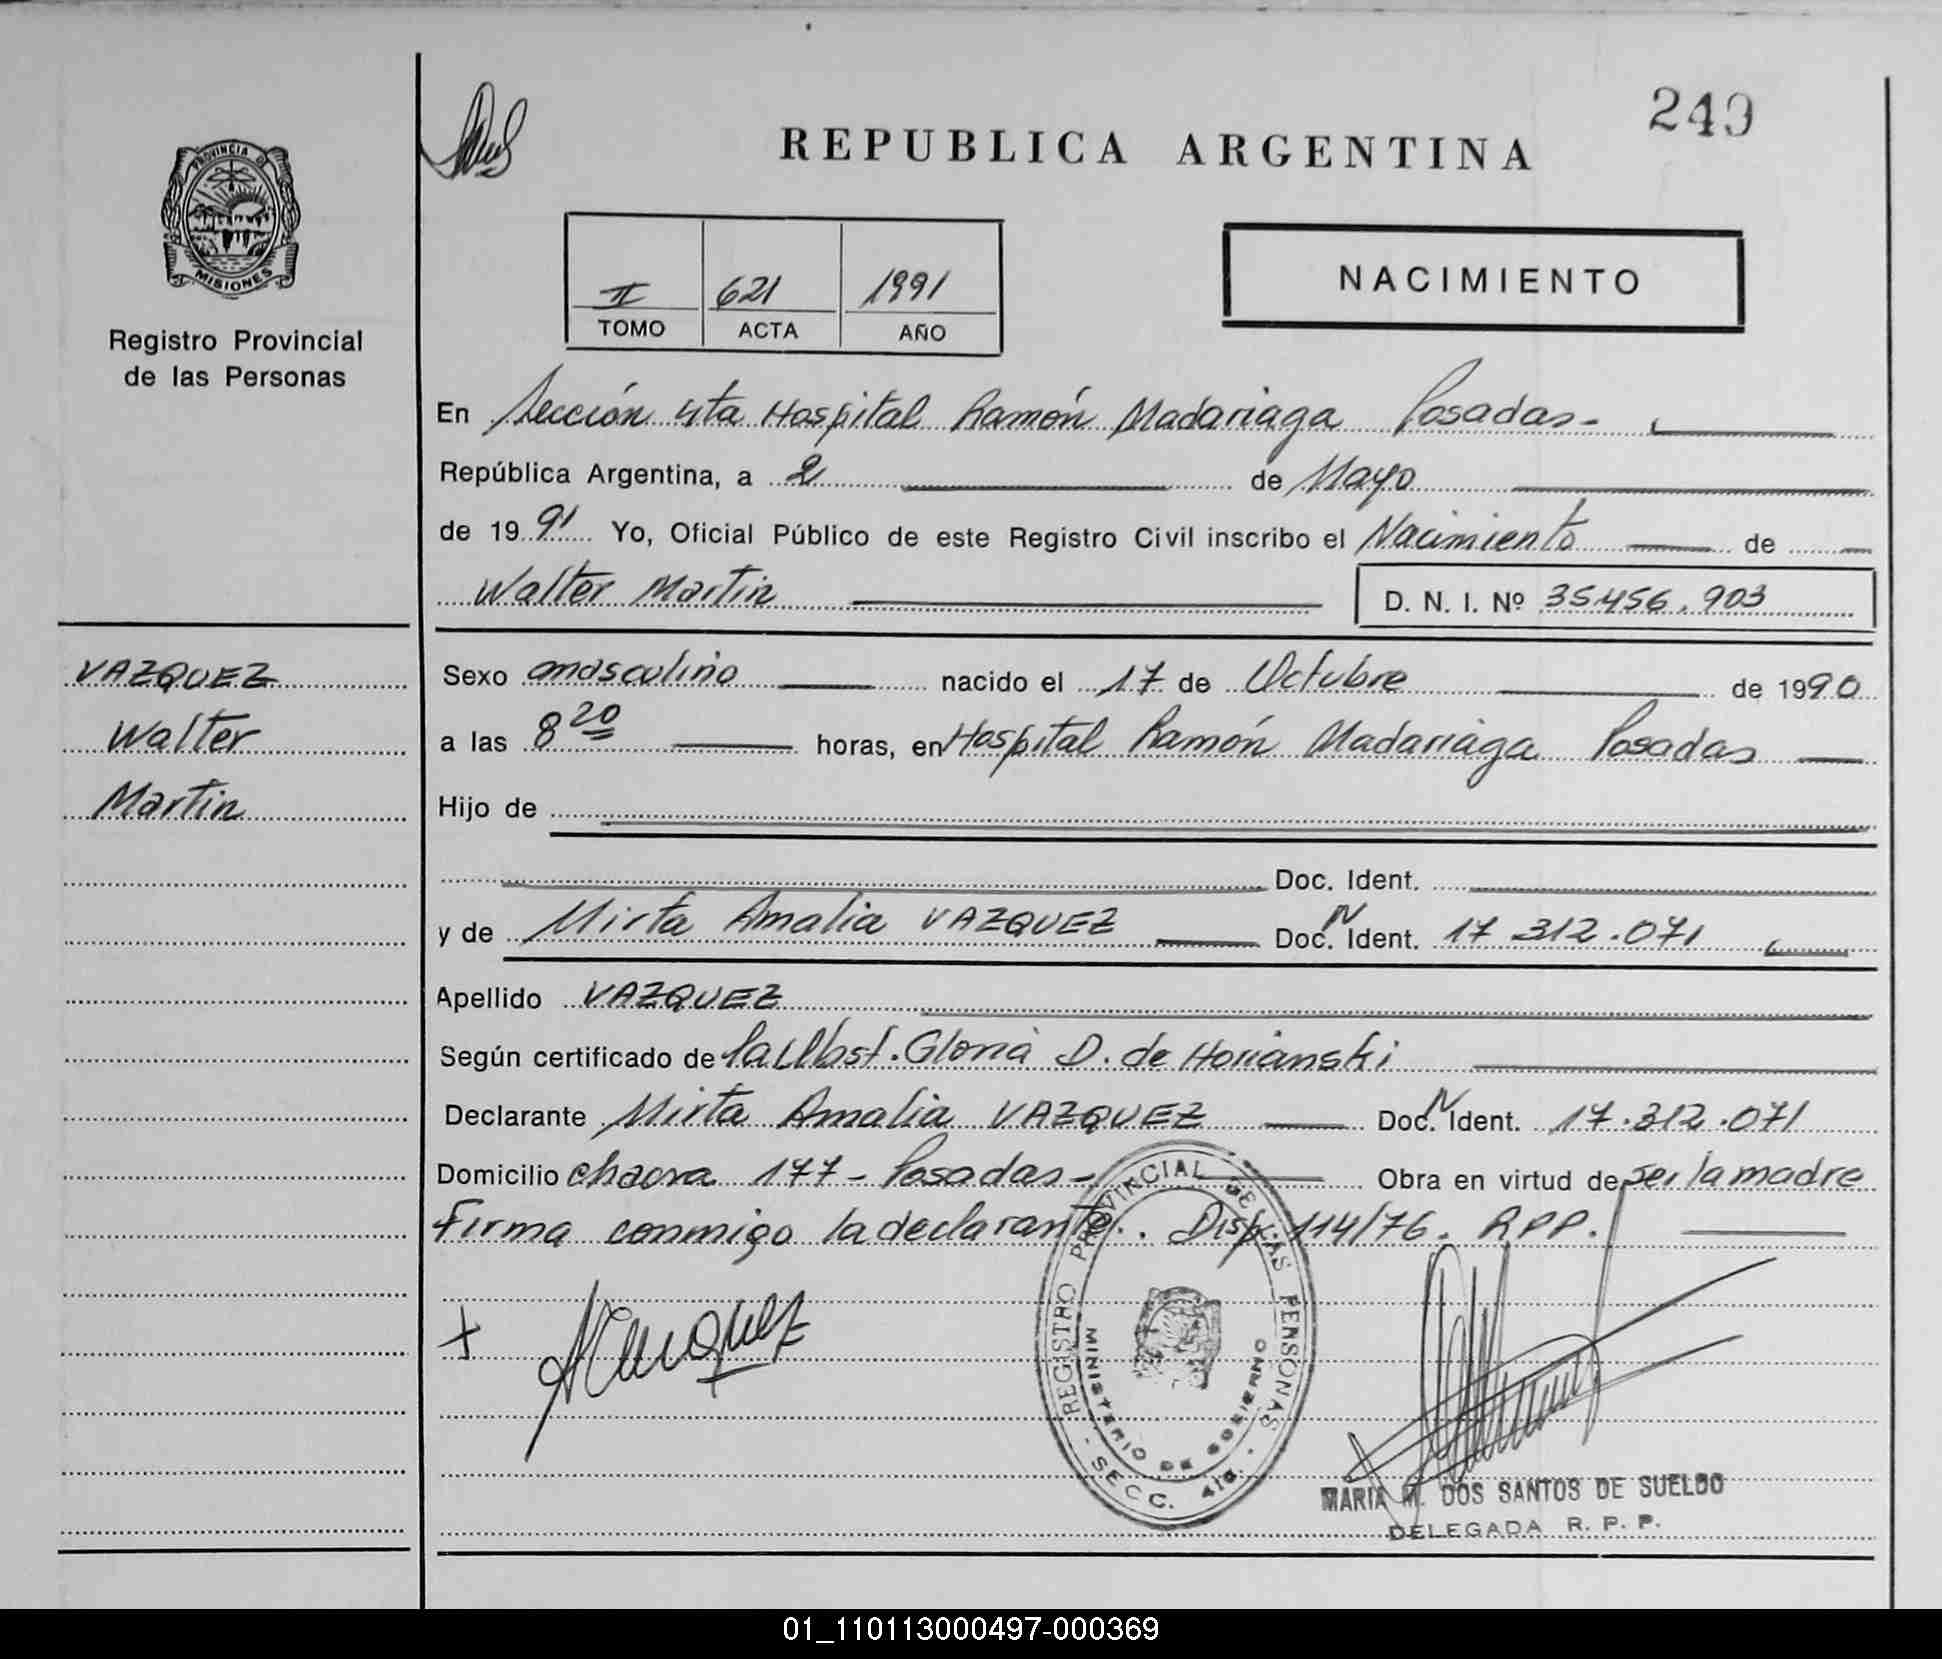 249
REPUBLICA ARGENTINA
PROVINCIA D
MISIONES
Registro Provincial
de las Personas
II 621 1991
TOMO ACTA AÑO
NACIMIENTO
En Sección 4ta Hospital Ramón Madariaga Posadas-
República Argentina, a 2 de Mayo
de 1991 Yo, Oficial Público de este Registro Civil inscribo el Nacimiento de
Walter Martin D. N. I. Nº 35.456.903
VAZQUEZ
Walter
Martin
Sexo masculino nacido el 17 de Octubre de 1990
a las 8 20 horas, en Hospital Ramón Madariaga Posadas
Hijo de
Doc. Ident.
y de Mirta Amalia VAZQUEZ Doc. N Ident. 17.312.071
Apellido VAZQUEZ
Según certificado de la Obst. Gloria D. de
Declarante Mirta Amalia VAZQUEZ Doc. N Ident. 17.312.071
Domicilio chacra 177 - Posadas - Obra en virtud de ser la madre
Firma conmigo la declarante. Disp. 114/76. RPP.
REGISTRO PROVINCIAL DE LAS PERSONAS
MINISTERIO DE GOBIERNO
- SECC. 4ta. -
MARIA M. DOS SANTOS DE SUELDO
DELEGADA R. P. P.
01_110113000497-000369